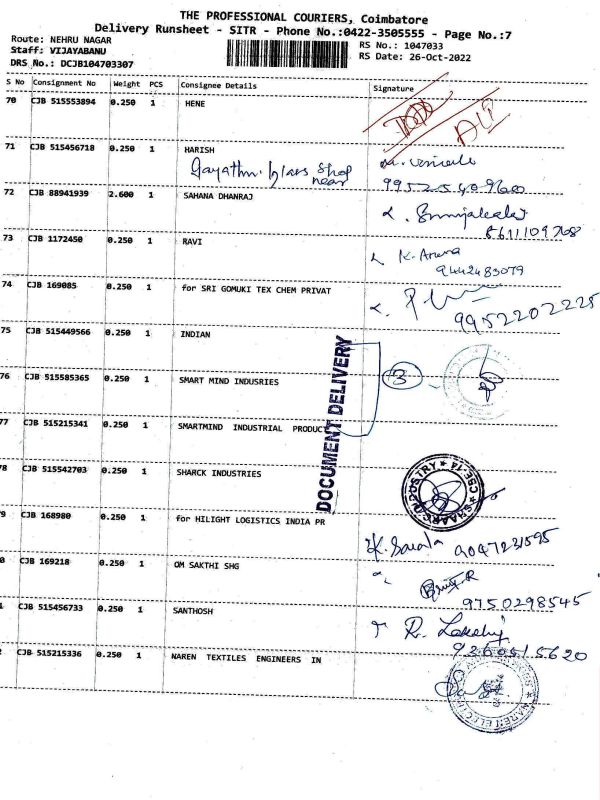 THE PROFESSIONAL COURIERS, Coimbatore
Delivery Runsheet - SITR - Phone No.:0422-3505555 - Page No.:7
Route: NEHRU NAGAR
Staff: VIJAYABANU
DRS No.: DCJB104703307
RS No.: 1047033
RS Date: 26-Oct-2022
S No Consignment No Weight PCS Consignee Details Signature
70 CJB 515553894 0.250 1 HENE
71 CJB 515456718 0.250 1 HARISH
Gayathri glass shop
near
72 CJB 88941939 2.600 1 SAHANA DHANRAJ
8611109768
73 CJB 1172450 0.250 1 RAVI K. Aruna
9442483079
74 CJB 169085 0.250 1 for SRI GOMUKI TEX CHEM PRIVAT
9952202225
75 CJB 515449566 0.250 1 INDIAN
76 CJB 515585365 0.250 1 SMART MIND INDUSRIES 3
77 CJB 515215341 0.250 1 SMARTMIND INDUSTRIAL PRODUCT
DOCUMENT DELIVERY
78 CJB 515542703 0.250 1 SHARCK INDUSTRIES
9 CJB 168980 0.250 1 for HILIGHT LOGISTICS INDIA PR
K. Sarala 9047231595
0 CJB 169218 0.250 1 OM SAKTHI SHG
9750298545
1 CJB 515456733 0.250 1 SANTHOSH
9360515620
2 CJB 515215336 0.250 1 NAREN TEXTILES ENGINEERS IN